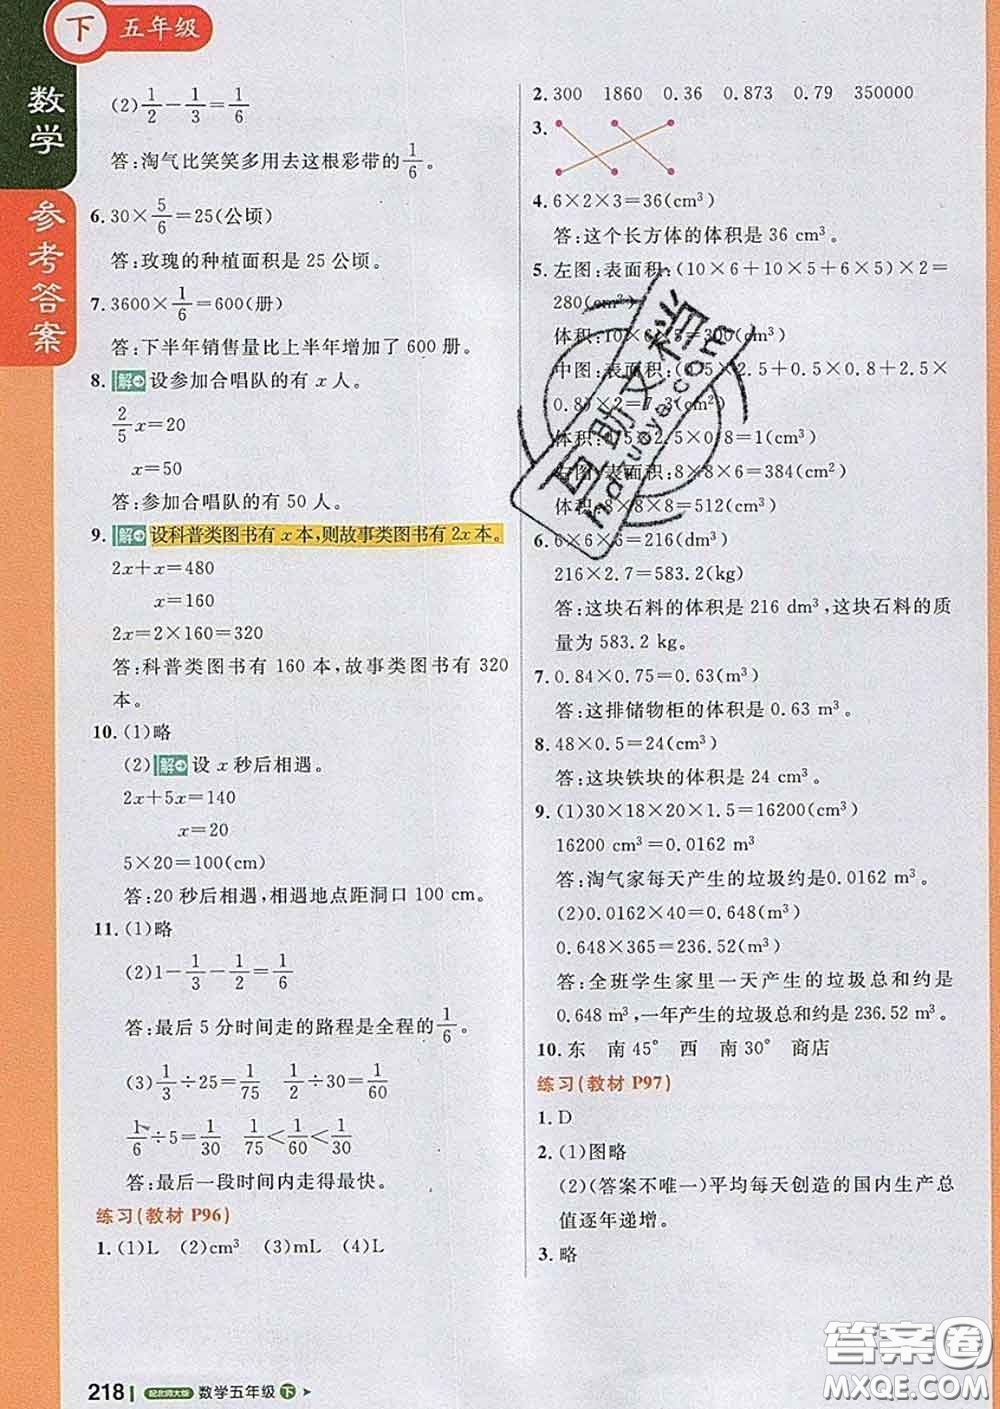 下 五年级
数学
参考答案
(2) 1/2 − 1/3 = 1/6
答:淘气比笑笑多用去这根彩带的 1/6。
6. 30× 5/6 =25(公顷)
答:玫瑰的种植面积是 25 公顷。
7. 3600× 1/6 =600(册)
答:下半年销售量比上半年增加了 600 册。
8. 解 设参加合唱队的有 x 人。
2/5 x=20
x=50
答:参加合唱队的有 50 人。
9. 解 设科普类图书有 x 本,则故事类图书有 2x 本。
2x+x=480
x=160
2x=2×160=320
答:科普类图书有 160 本,故事类图书有 320
本。
10. (1)略
(2) 解 设 x 秒后相遇。
2x+5x=140
x=20
5×20=100(cm)
答:20 秒后相遇,相遇地点距洞口 100 cm。
11. (1)略
(2)1− 1/3 − 1/2 = 1/6
答:最后 5 分时间走的路程是全程的 1/6。
(3) 1/3 ÷25= 1/75 1/2 ÷30= 1/60
1/6 ÷5= 1/30 1/75 < 1/60 < 1/30
答:最后一段时间内走得最快。
练习(教材 P96)
1. (1)L (2)cm³ (3)mL (4)L
2. 300 1860 0.36 0.873 0.79 350000
3.
4. 6×2×3=36(cm³)
答:这个长方体的体积是 36 cm³。
5. 左图:表面积:(10×6+10×5+6×5)×2=
280(cm²)
体积:10×6×5=300(cm³)
中图:表面积:(2.5+0.5×0.8+2.5×
0.8)×2=7.3(cm²)
体积:0.5×2.5×0.8=1(cm³)
右图:表面积:8×8×6=384(cm²)
体积:8×8×8=512(cm³)
6. 6×6×6=216(dm³)
216×2.7=583.2(kg)
答:这块石料的体积是 216 dm³,这块石料的质
量为 583.2 kg。
7. 0.84×0.75=0.63(m³)
答:这排储物柜的体积是 0.63 m³。
8. 48×0.5=24(cm³)
答:这块铁块的体积是 24 cm³。
9. (1)30×18×20×1.5=16200(cm³)
16200 cm³=0.0162 m³
答:淘气家每天产生的垃圾约是0.0162 m³。
(2)0.0162×40=0.648(m³)
0.648×365=236.52(m³)
答:全班学生家里一天产生的垃圾总和约是
0.648 m³,一年产生的垃圾总和约是236.52 m³。
10. 东 南45° 西 南30° 商店
练习(教材 P97)
1. D
2. (1)图略
(2)(答案不唯一)平均每天创造的国内生产总
值逐年递增。
3. 略
互助文档
hdzuoye.com
218 配北师大版 数学五年级 下
答案圈
MXQE.COM